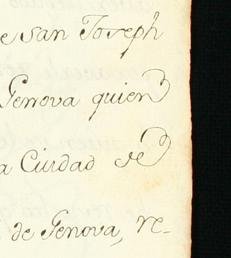 e san Joseph
Genova quien
a Ciudad de
de Genova, re-